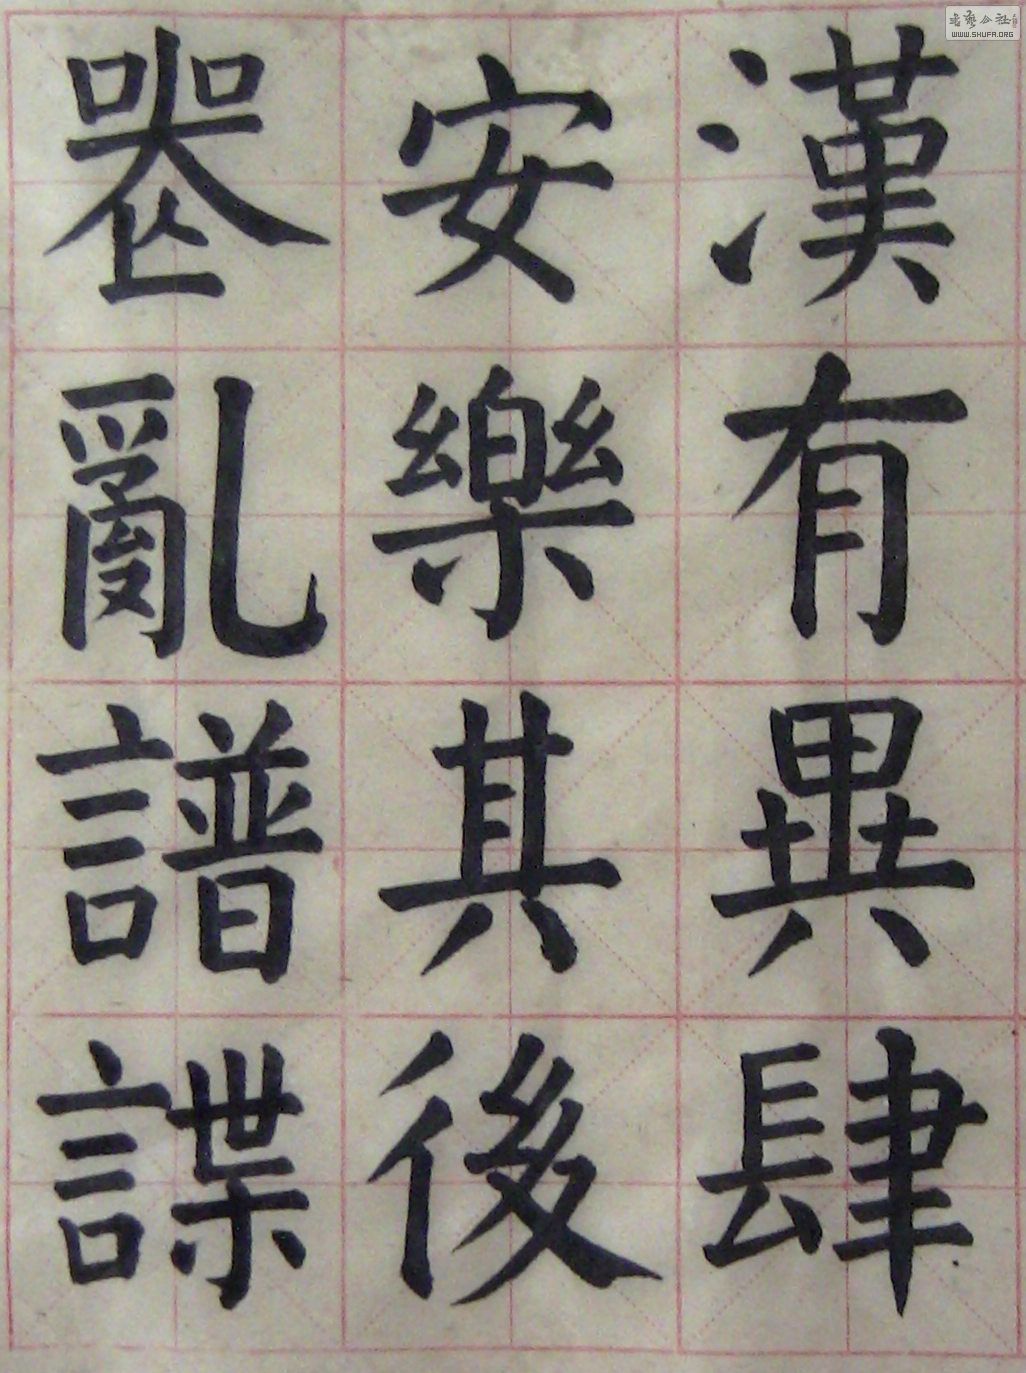 漢有異肆
安樂其後
喪亂譜諜
書藝公社
WWW.SHUFA.ORG